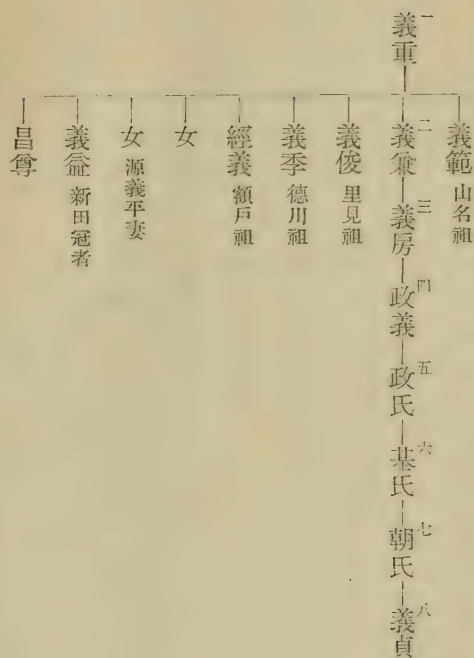 一 義重
義範 山名祖
二 義兼 三 義房 四 政義 五 政氏 六 基氏 七 朝氏 八 義貞
義俊 里見祖
義季 德川祖
經義 額戶祖
女
女 源義平妻
義益 新田冠者
昌尊